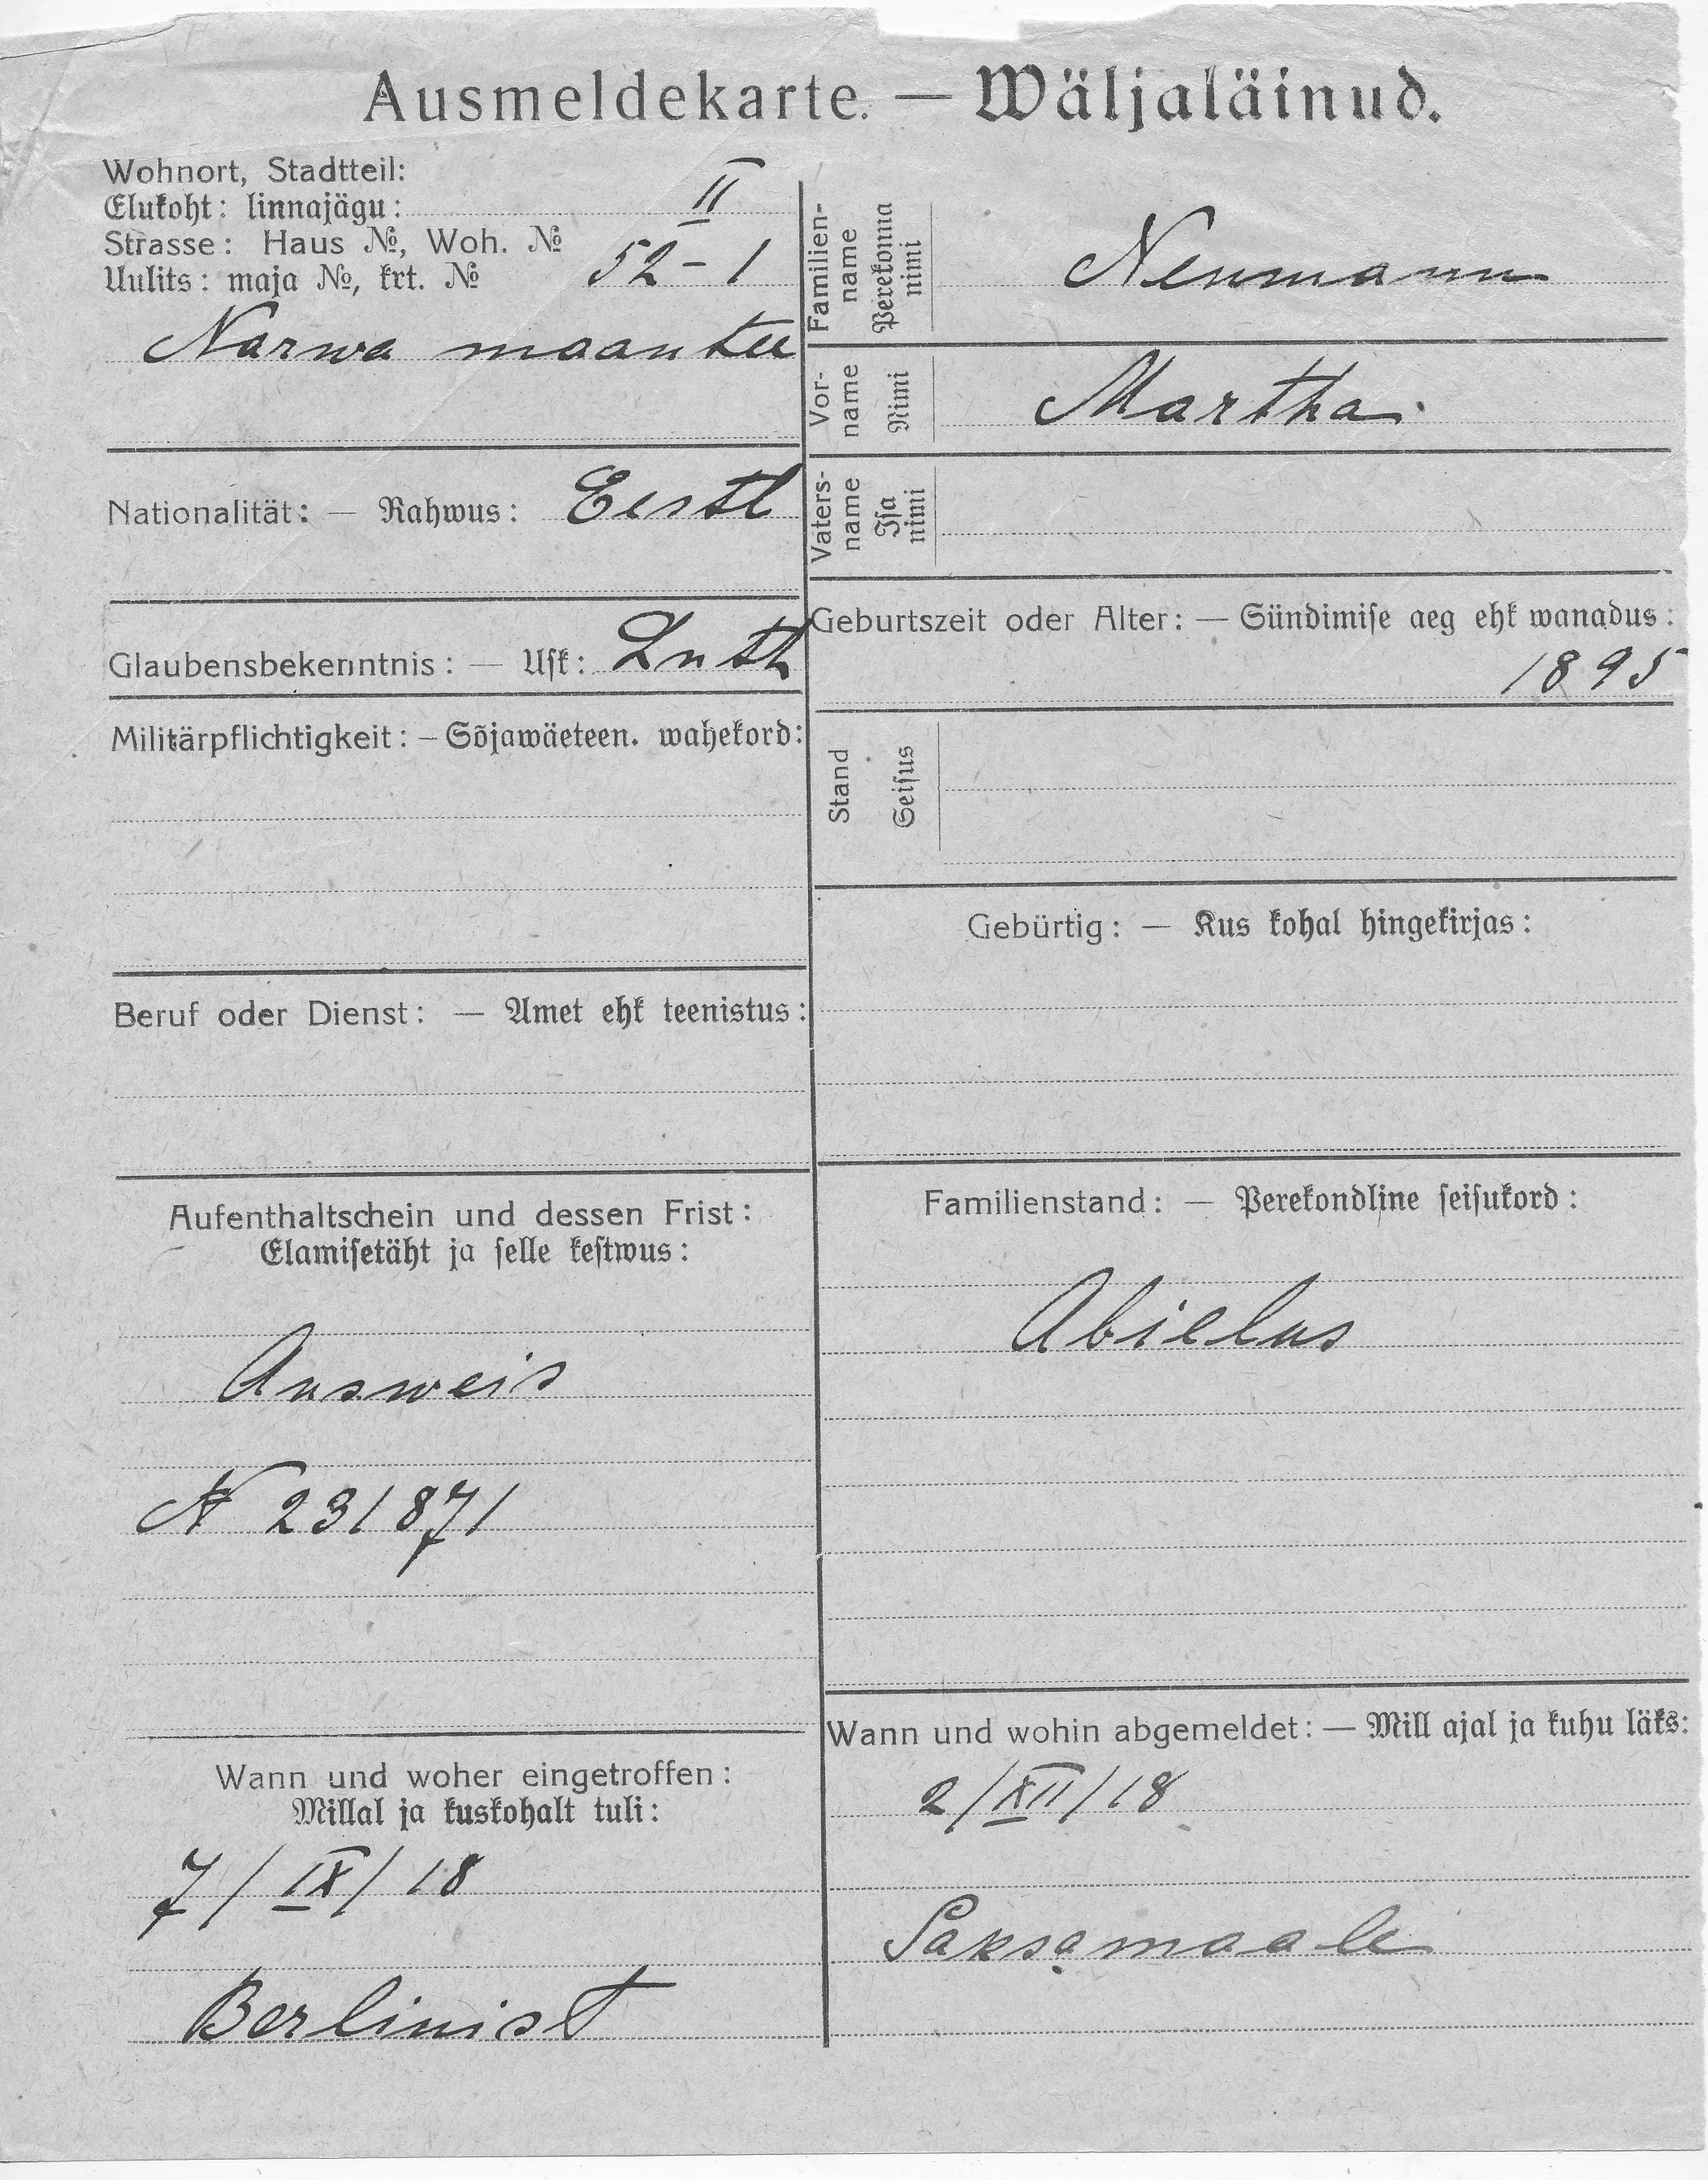 Ausmeldekarte. — Wäljaläinud.
Wohnort, Stadtteil:
Elukoht: linnajägu: II
Strasse: Haus №, Woh. №
Uulits: maja №, krt. № 52-1
Narwa maantee
Nationalität: — Rahwus: Eestl
Glaubensbekenntnis: — Usk: Luth
Militärpflichtigkeit: — Sõjawäeteen. wahekord:
Beruf oder Dienst: — Amet ehk teenistus:
Aufenthaltschein und dessen Frist:
Elamisetäht ja selle kestwus:
Ausweis
N 231871
Wann und woher eingetroffen:
Millal ja kuskohalt tuli:
7/IX/18
Berlinist
Familien-
name
Perekonna
nimi
Neumann
Vor-
name
Nimi
Martha.
Vaters-
name
Isa
nimi
Geburtszeit oder Alter: — Sündimise aeg ehk wanadus:
1895
Stand
Seisus
Gebürtig: — Kus kohal hingekirjas:
Familienstand: — Perekondline seisukord:
Abielus
Wann und wohin abgemeldet: — Mill ajal ja kuhu läks:
2/XII/18
Saksamaale